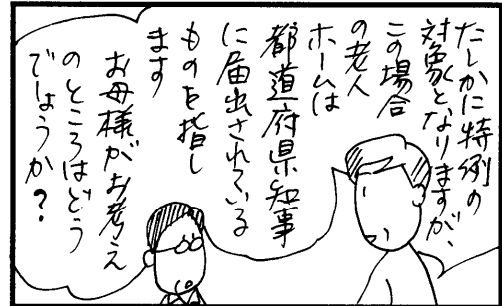 たしかに特例の
対象となりますが、
この場合
の老人
ホームは
都道府県知事
に届出されている
ものを指し
ます
お母様がお考え
のところはどう
でしょうか?